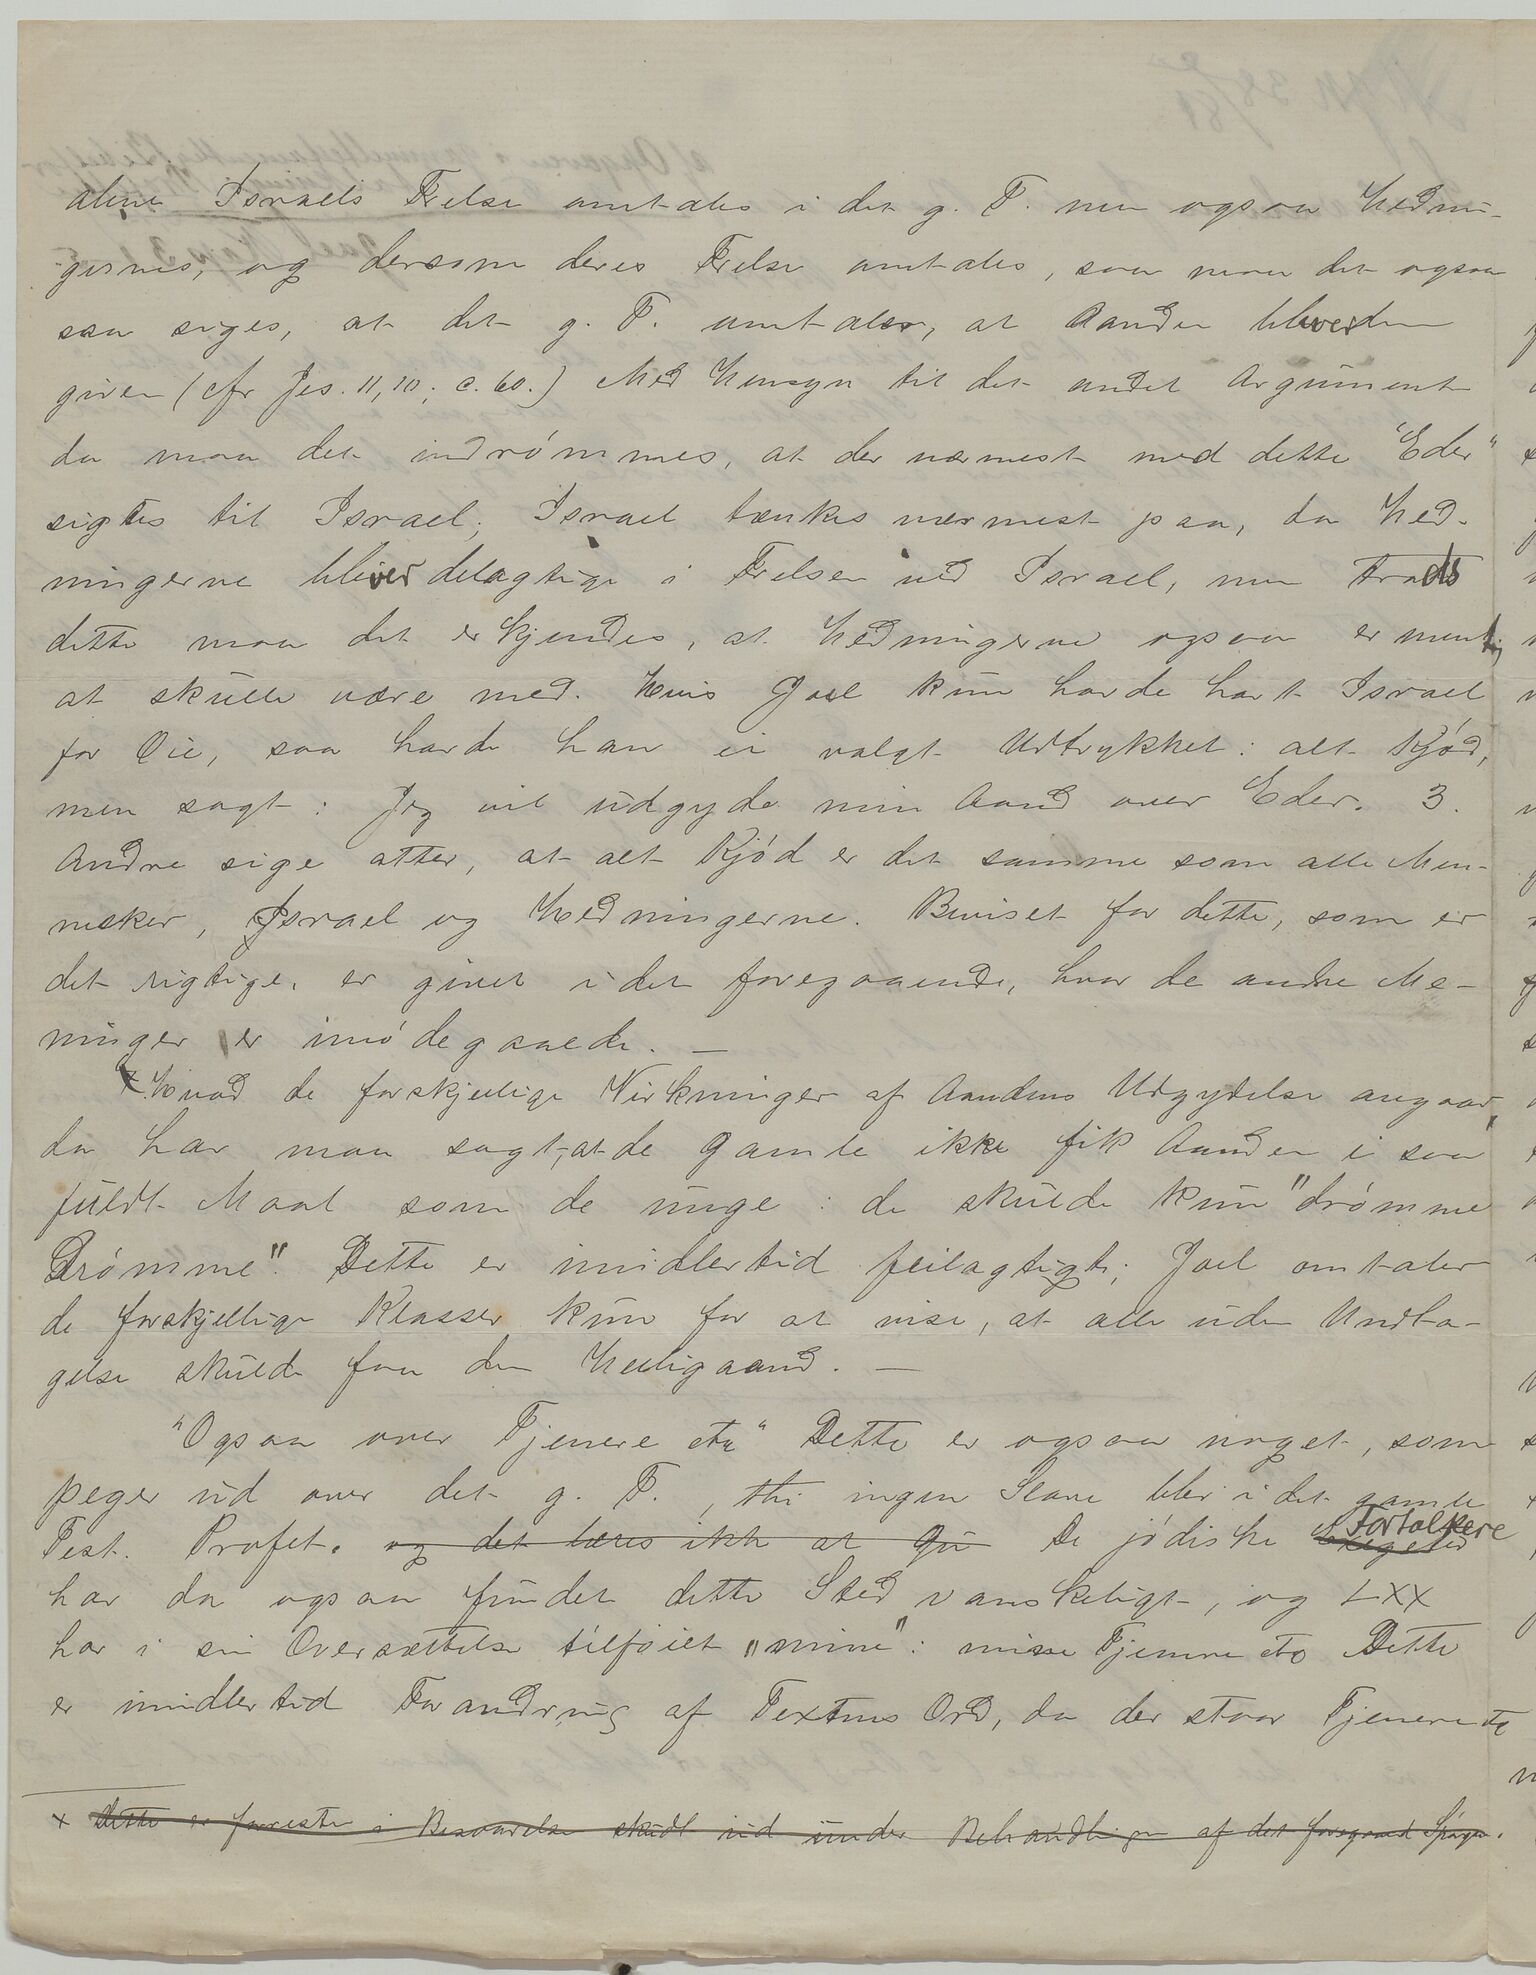 alene Israels Frelse omtales i det g. T. men ogsaa Hednin-
gernes, og dersom deres Frelse omtales, saa maa det ogsaa
saa siges, at det g. T. omtaler, at Aanden bliver dem
given (cfr Jes. 11,10; c. 60.) Med Hensyn til det andet Argument
da maa det indrømmes, at der nærmest med dette "Eder"
sigtes til Israel; Israel tænkes nærmest paa, da Hed-
ningerne bliver delagtige i Frelsen ved Israel, men trods
dette maa det erkjendes, at Hedningerne ogsaa er mente
at skulle være med. Hvis Joel kun havde havt Israel
for Øie, saa havde han ei valgt Udtrykket: alt Kjød,
men sagt: Jeg vil udgyde min Aand over Eder. 3.
Andre sige atter, at alt Kjød er det samme som alle Men-
nesker, Israel og Hedningerne. Beviset for dette, som er
det rigtige, er givet i det foregaaende, hvor de andre Me-
ninger er imødegaaede. —
x Hvad de forskjellige Virkninger af Aandens Udgydelse angaar,
da har man sagt, at de Gamle ikke fik Aanden i saa
fuldt Maal som de unge: de skulde kun "drømme
Drømme". Dette er imidlertid feilagtigt; Joel omtaler
de forskjellige Klasser kun for at vise, at alle uden Undta-
gelse skulde faa den Helligaand. —
"Ogsaa over Tjenere etc" Dette er ogsaa noget, som
peger ud over det g. T., thi ingen Slave blev i det gamle
Test. Profet. og det læres ikke at Gu De jødiske Exegeter Fortolkere
har da ogsaa fundet dette Sted vanskeligt, og LXX
har i sin Oversættelse tilføiet "mine": mine Tjenere etc Dette
er imidlertid Forandring af Textens Ord, da der staar Tjenere etc
x Dette er forresten i Besvarelse skudt ud under Behandlingen af det foregaaend Spørgs.